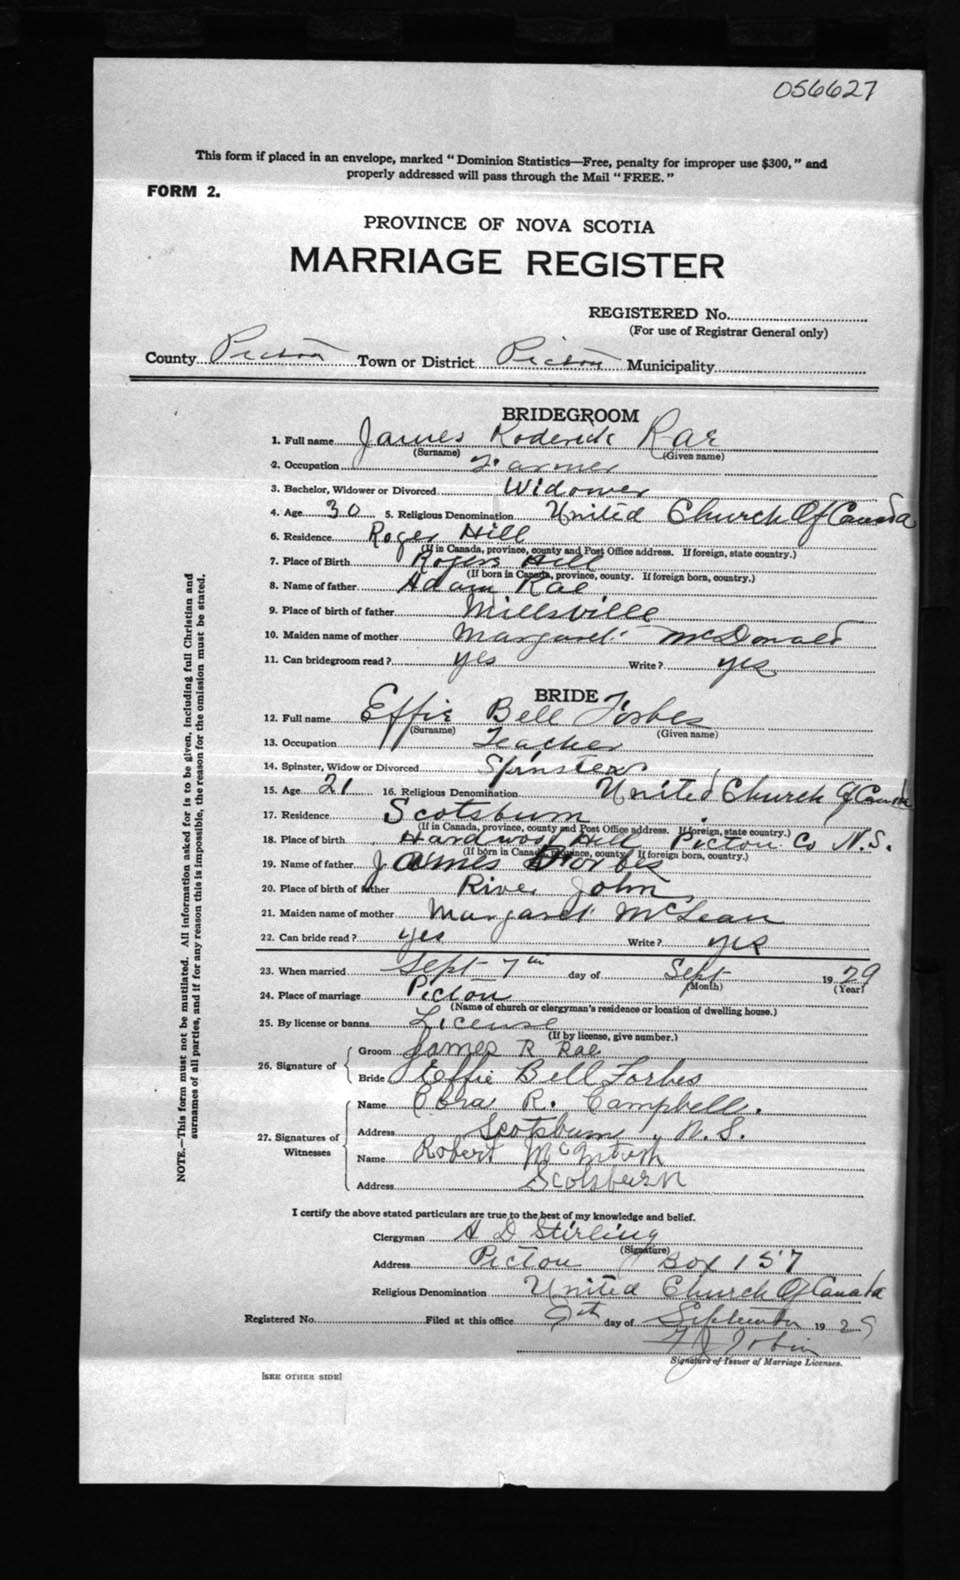 056627
This form if placed in an envelope, marked "Dominion Statistics—Free, penalty for improper use $300," and
properly addressed will pass through the Mail "FREE."
FORM 2.
PROVINCE OF NOVA SCOTIA
MARRIAGE REGISTER
REGISTERED No.
(For use of Registrar General only)
County Pictou Town or District Pictou Municipality
BRIDEGROOM
1. Full name James Roderick Rae
(Surname) (Given name)
2. Occupation Farmer
3. Bachelor, Widower or Divorced Widower
4. Age 30 5. Religious Denomination United Church Of Canada
6. Residence Roger Hill
(If in Canada, province, county and Post Office address. If foreign, state country.)
7. Place of Birth Rogers Hill
(If born in Canada, province, county. If foreign born, country.)
8. Name of father Adam Rae
9. Place of birth of father Millsville
10. Maiden name of mother Margaret McDonald
11. Can bridegroom read? yes Write? yes
BRIDE
12. Full name Effie Bell Forbes
(Surname) (Given name)
13. Occupation Teacher
14. Spinster, Widow or Divorced Spinster
15. Age 21 16. Religious Denomination United Church Of Canada
17. Residence Scotsburn
(If in Canada, province, county and Post Office address. If foreign, state country.)
18. Place of birth Hardwood Hill Pictou Co N.S.
(If born in Canada, province, county. If foreign born, country.)
19. Name of father James Forbes
20. Place of birth of father River John
21. Maiden name of mother Margaret McLean
22. Can bride read? yes Write? yes
23. When married Sept 7th day of Sept 1929
(Month) (Year)
24. Place of marriage Pictou
(Name of church or clergyman's residence or location of dwelling house.)
25. By license or banns License
(If by license, give number.)
26. Signature of Groom James R Rae
Bride Effie Bell Forbes
27. Signatures of Witnesses
Name R. Campbell.
Address Scotsburn, N.S.
Name Robert McIntosh
Address Scotsburn
I certify the above stated particulars are true to the best of my knowledge and belief.
Clergyman A D Stirling
(Signature)
Address Pictou Box 157
Religious Denomination United Church Of Canada
Registered No. Filed at this office 9th day of September 1929
Signature of Issuer of Marriage Licenses.
[SEE OTHER SIDE]
NOTE.—This form must not be mutilated. All information asked for is to be given, including full Christian and
surnames of all parties, and if for any reason this is impossible, the reason for the omission must be stated.